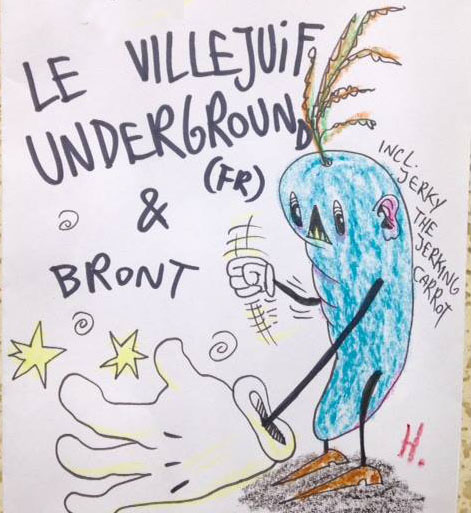 LE VILLEJUIF
UNDERGROUND
(FR)
&
BRONT
INCL.
JERKY
THE
JERKING
CARROT
H.